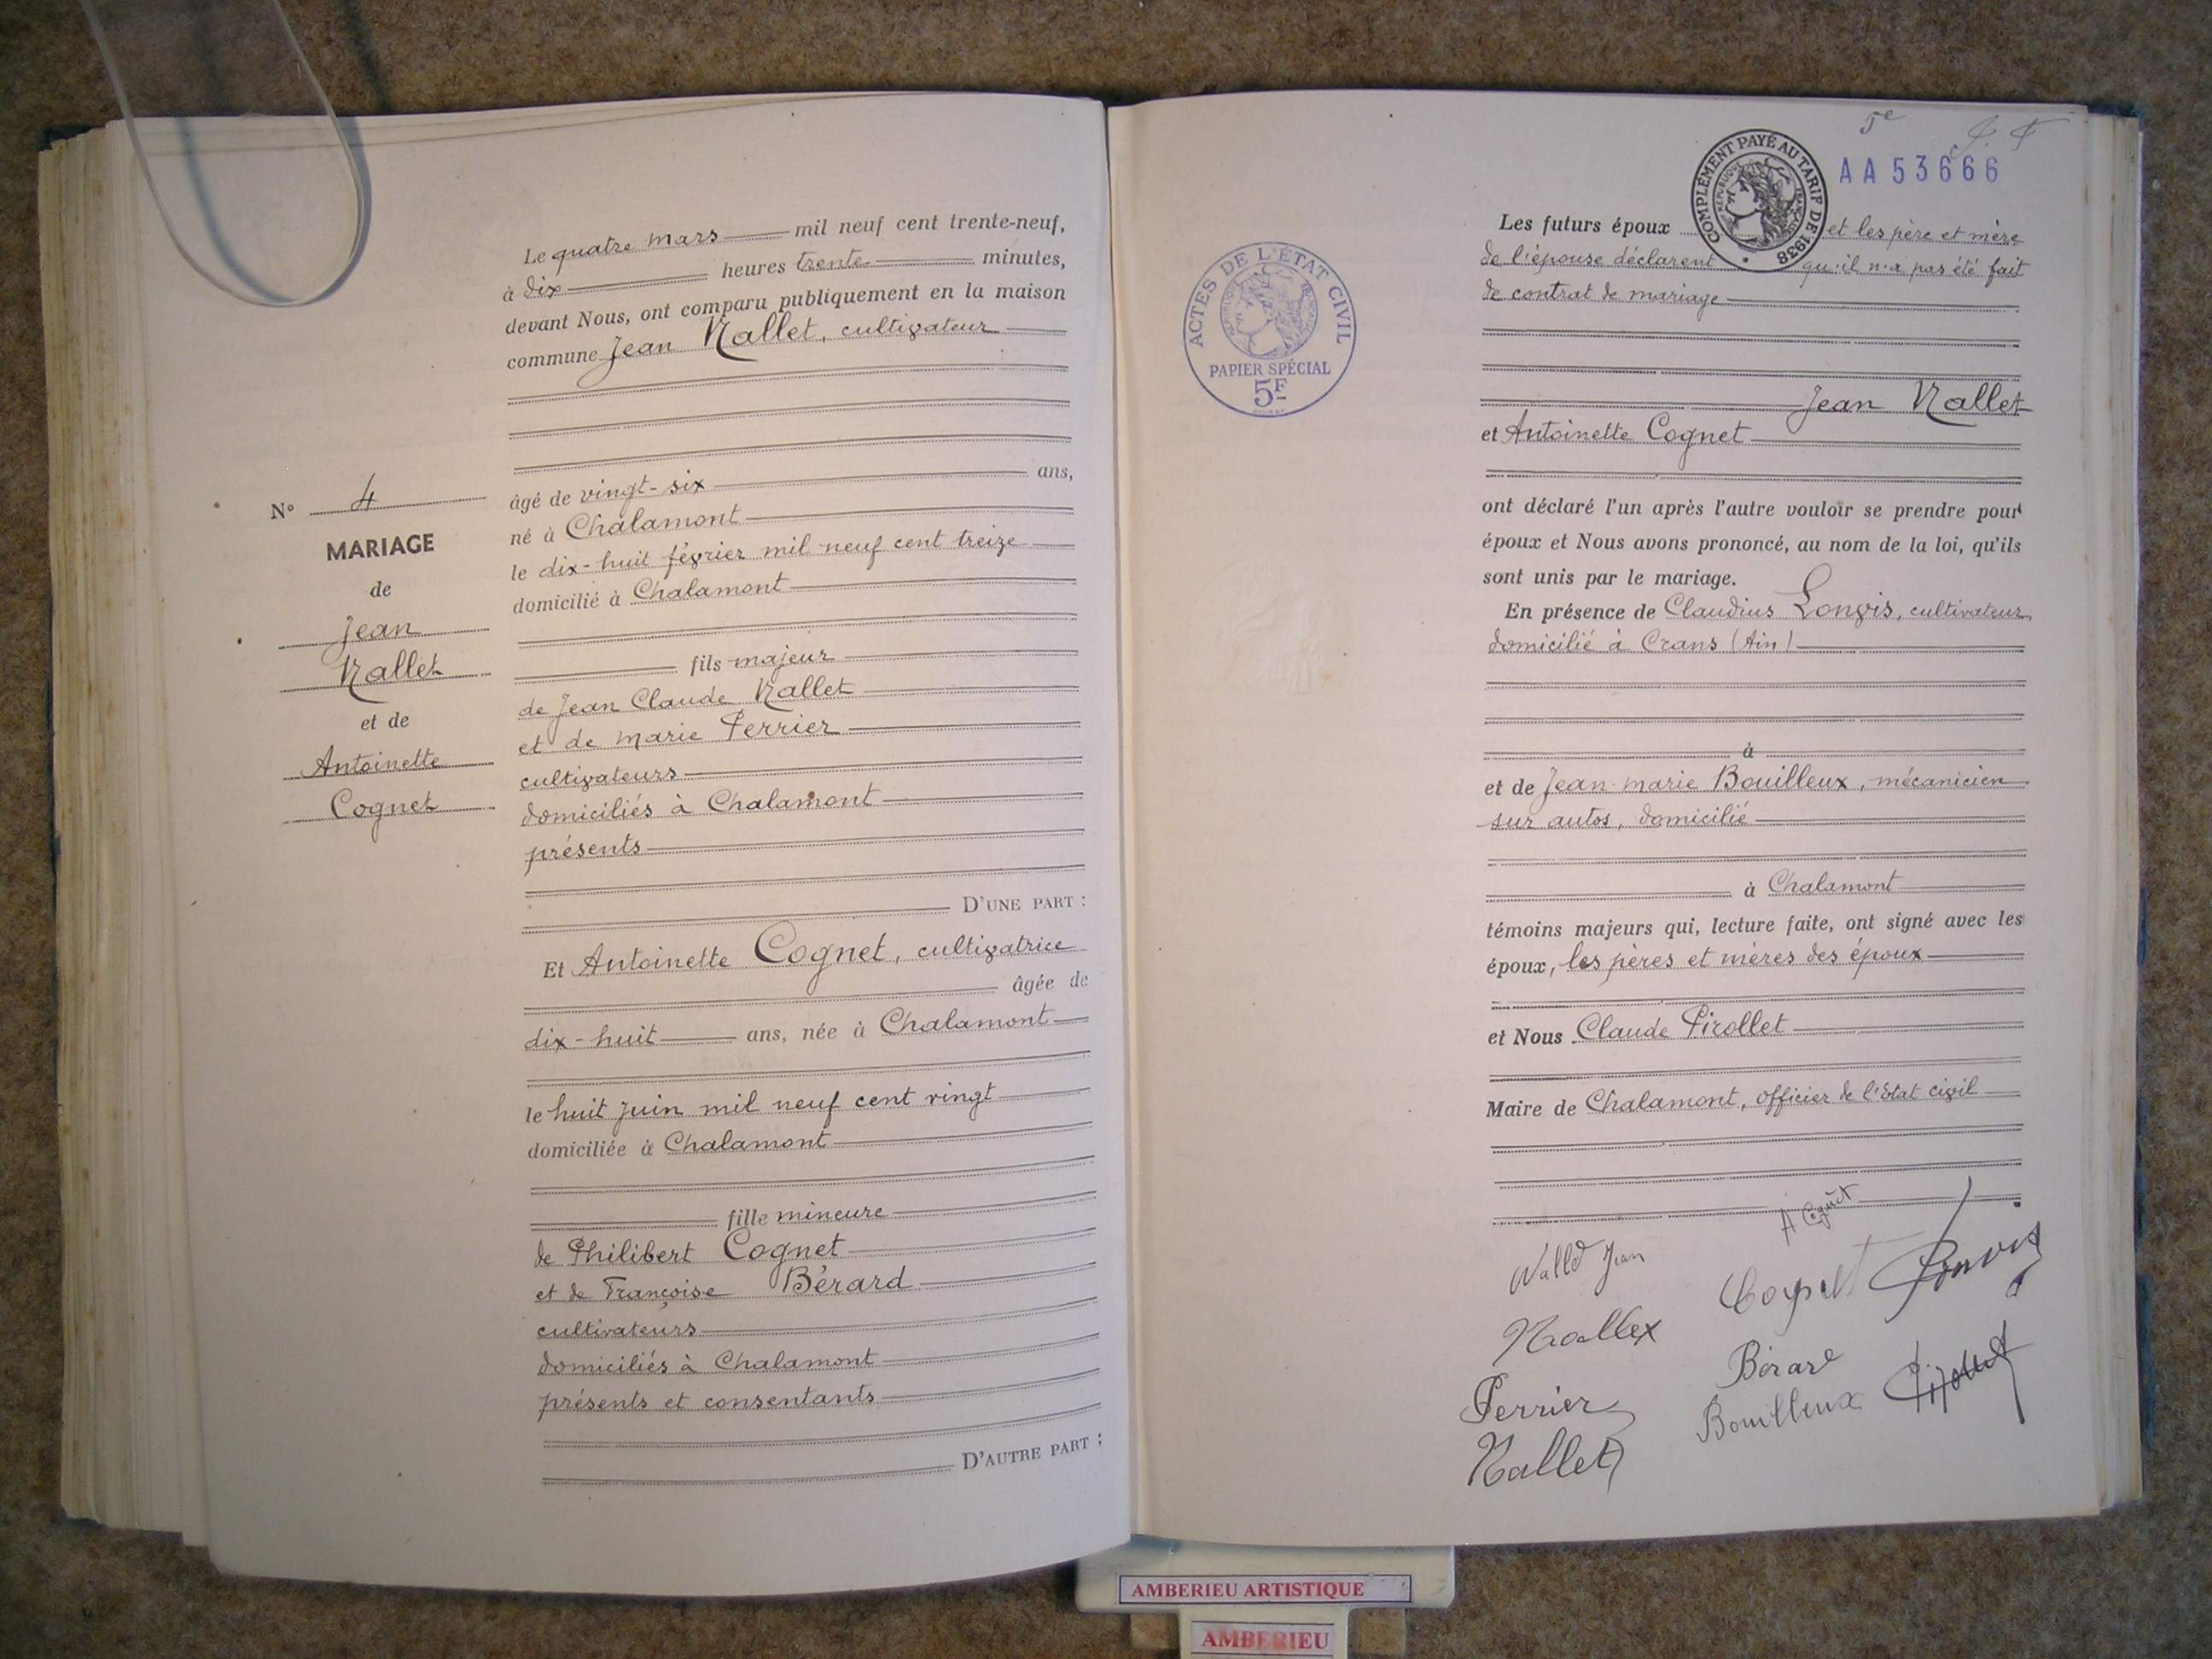 Le quatre mars mil neuf cent trente-neuf,
à dix heures trente minutes,
devant Nous, ont comparu publiquement en la maison
commune Jean Nallet, cultivateur
âgé de vingt-six ans,
né à Chalamont
le dix-huit février mil neuf cent treize
domicilié à Chalamont
fils majeur
de Jean Claude Nallet
et de marie Perrier
cultivateurs
domiciliés à Chalamont
présents
D'UNE PART :
Et Antoinette Cognet, cultivatrice
âgée de
dix-huit ans, née à Chalamont
le huit juin mil neuf cent vingt
domiciliée à Chalamont
fille mineure
de Philibert Cognet
et de Françoise Bérard
cultivateurs
domiciliés à Chalamont
présents et consentants
D'AUTRE PART :
N° 4
MARIAGE
de
Jean
Nallet
et de
Antoinette
Cognet
5e
AA 53666
COMPLÉMENT PAYÉ AU TARIF DE 1938
ACTES DE L'ÉTAT CIVIL
PAPIER SPÉCIAL
5F
Les futurs époux et les père et mère
de l'épouse déclarent qu'il n'a pas été fait
de contrat de mariage
Jean Nallet
et Antoinette Cognet
ont déclaré l'un après l'autre vouloir se prendre pour
époux et Nous avons prononcé, au nom de la loi, qu'ils
sont unis par le mariage.
En présence de Claudius Longis, cultivateur,
domicilié à Crans (Ain)
à
et de Jean-marie Bouilleux, mécanicien
sur autos, domicilié
à Chalamont
témoins majeurs qui, lecture faite, ont signé avec les
époux, les pères et mères des époux
et Nous Claude Pirollet
Maire de Chalamont, officier de l'état civil
A Cognet
Nallet Jean
Cognet
Nallet
Bérard
Perrier
Bouilleux Pirollet
Nallet
AMBERIEU ARTISTIQUE
AMBERIEU